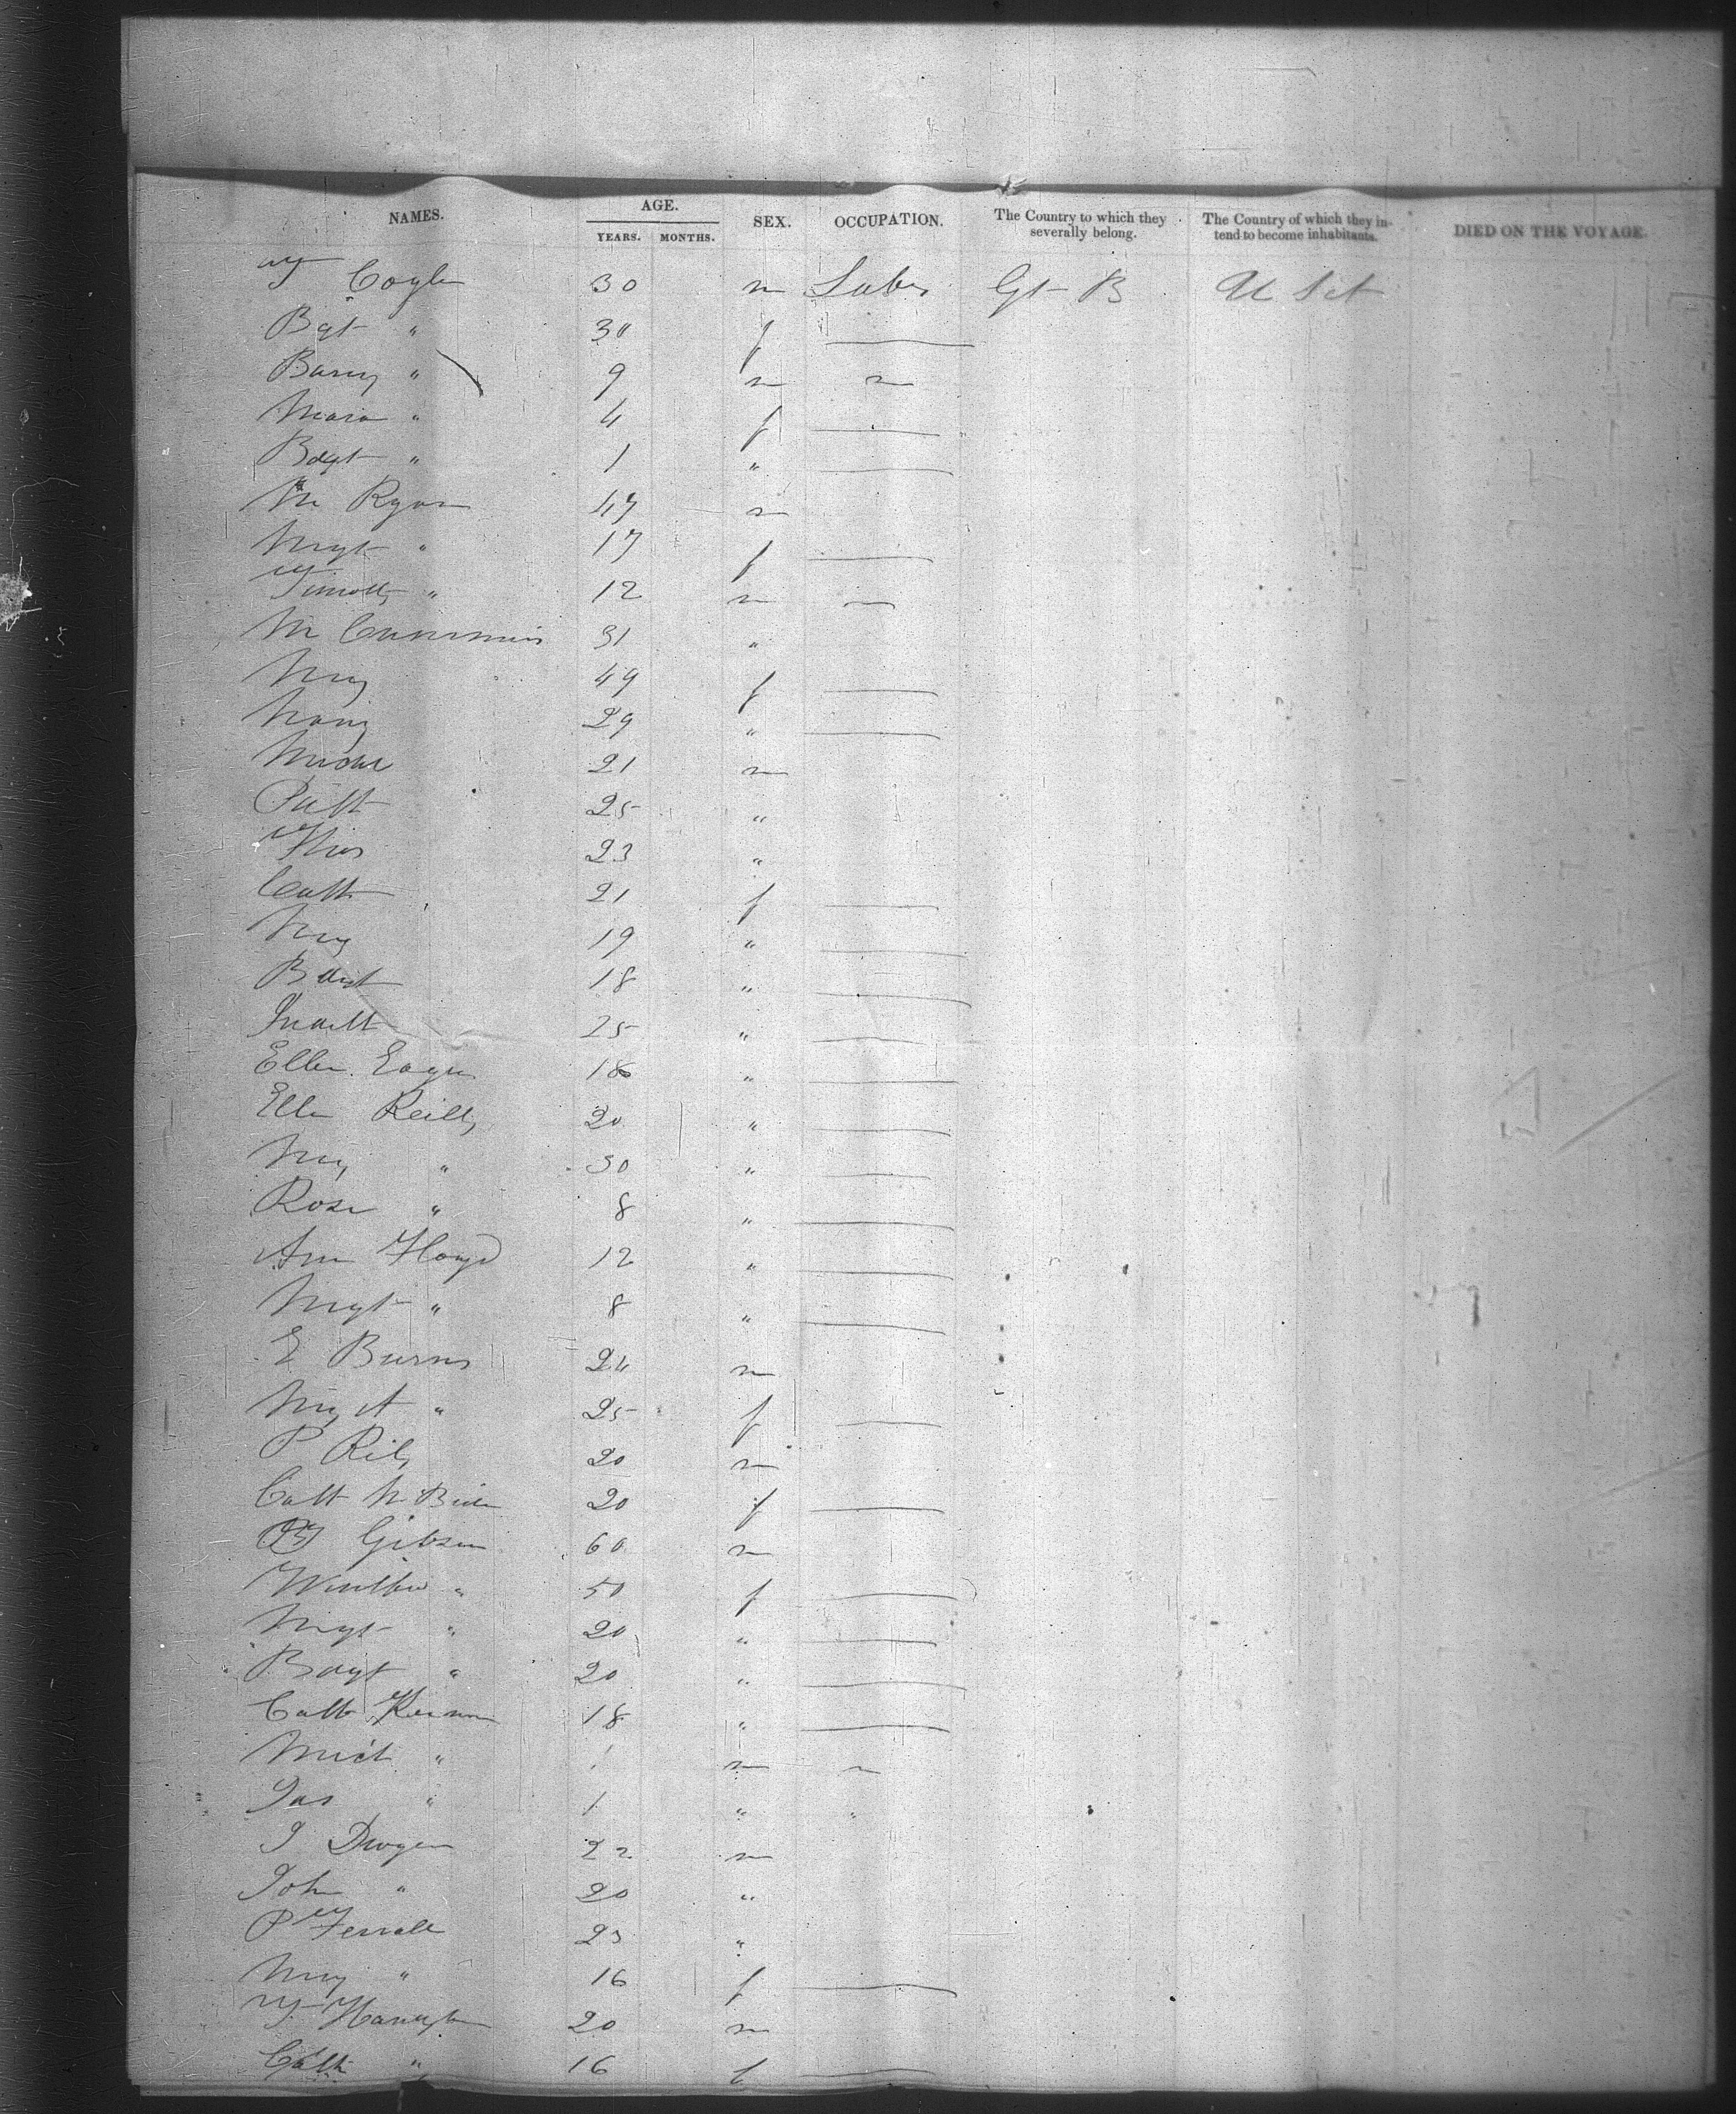 NAMES. AGE. YEARS. MONTHS. SEX. OCCUPATION. The Country to which they severally belong. The Country of which they intend to become inhabitants. DIED ON THE VOYAGE.
T Coyle 30 m Labr Gt B U Sts
Bgt " 30 f
Barny " 9 m
Maria " 4 f
Bdgt " 1 "
M Ryan 47 m
Mgt " 17 f
Timothy " 12 m
M Cummins 31 "
My 49 f
Nancy 29 "
Michl 21 m
Patt 25 "
Thos 23 "
Cath 21 f
My 19 "
Bdgt 18 "
25 "
Ellen Eagen 18 "
Ellen Reilly 20 "
My " 30 "
Rose " 8 "
Ann Floyd 12 "
Mgt " 8 "
E Burns 24 m
My A " 25 f
P Rily 20 m
Cath 20 f
Gibson 60 m
" 50 f
Mgt " 20 "
Bdgt " 20 "
Cath Kernan 18 "
Mich " 1 m
Jas " 1 " "
J Dwyer 22 m
John " 20 "
P Ferrall 23 "
My " 16 f
T 20 m
Cath " 16 f